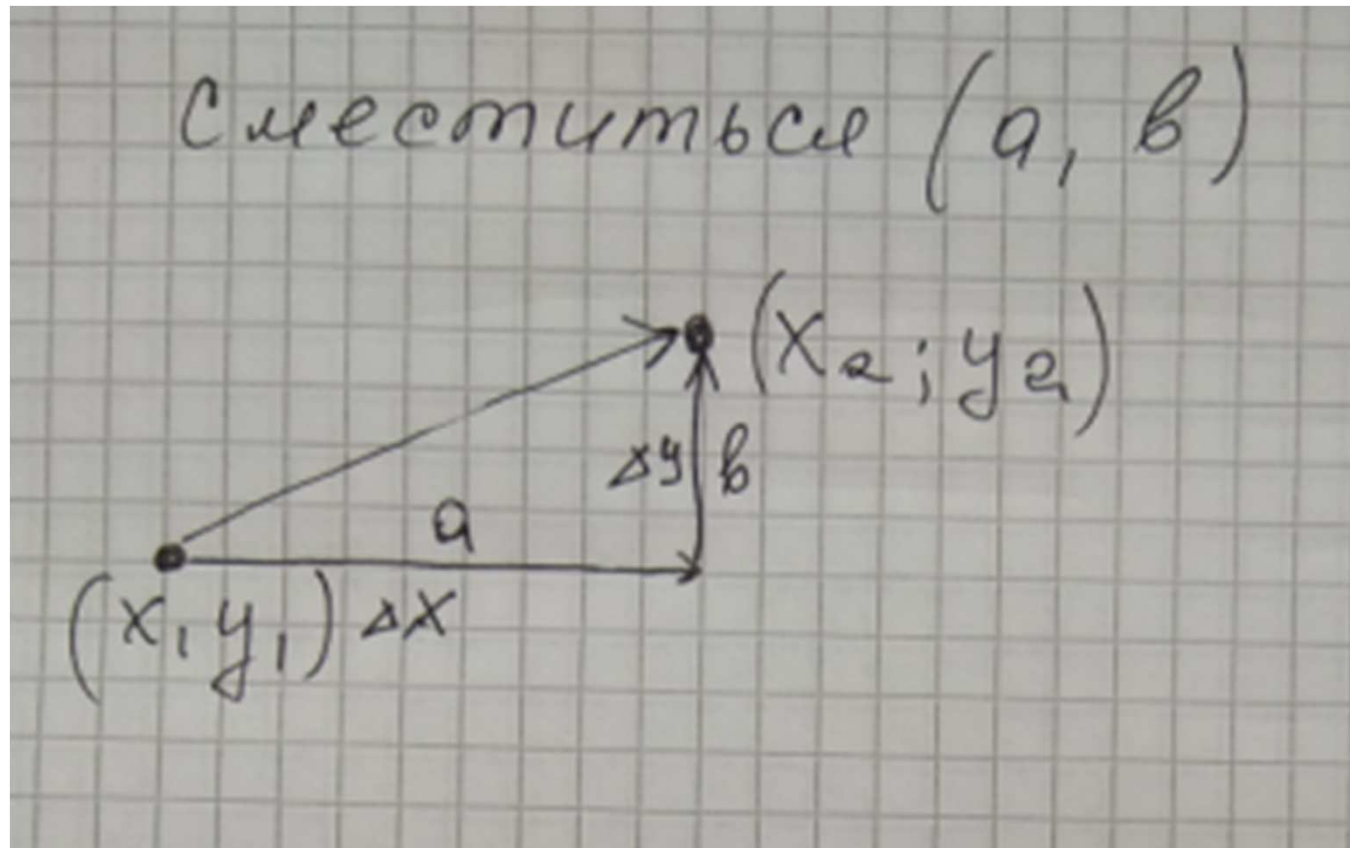 Сместиться (а, в)
(x₂; y₂)
Δy в
а
(x₁ y₁) Δx